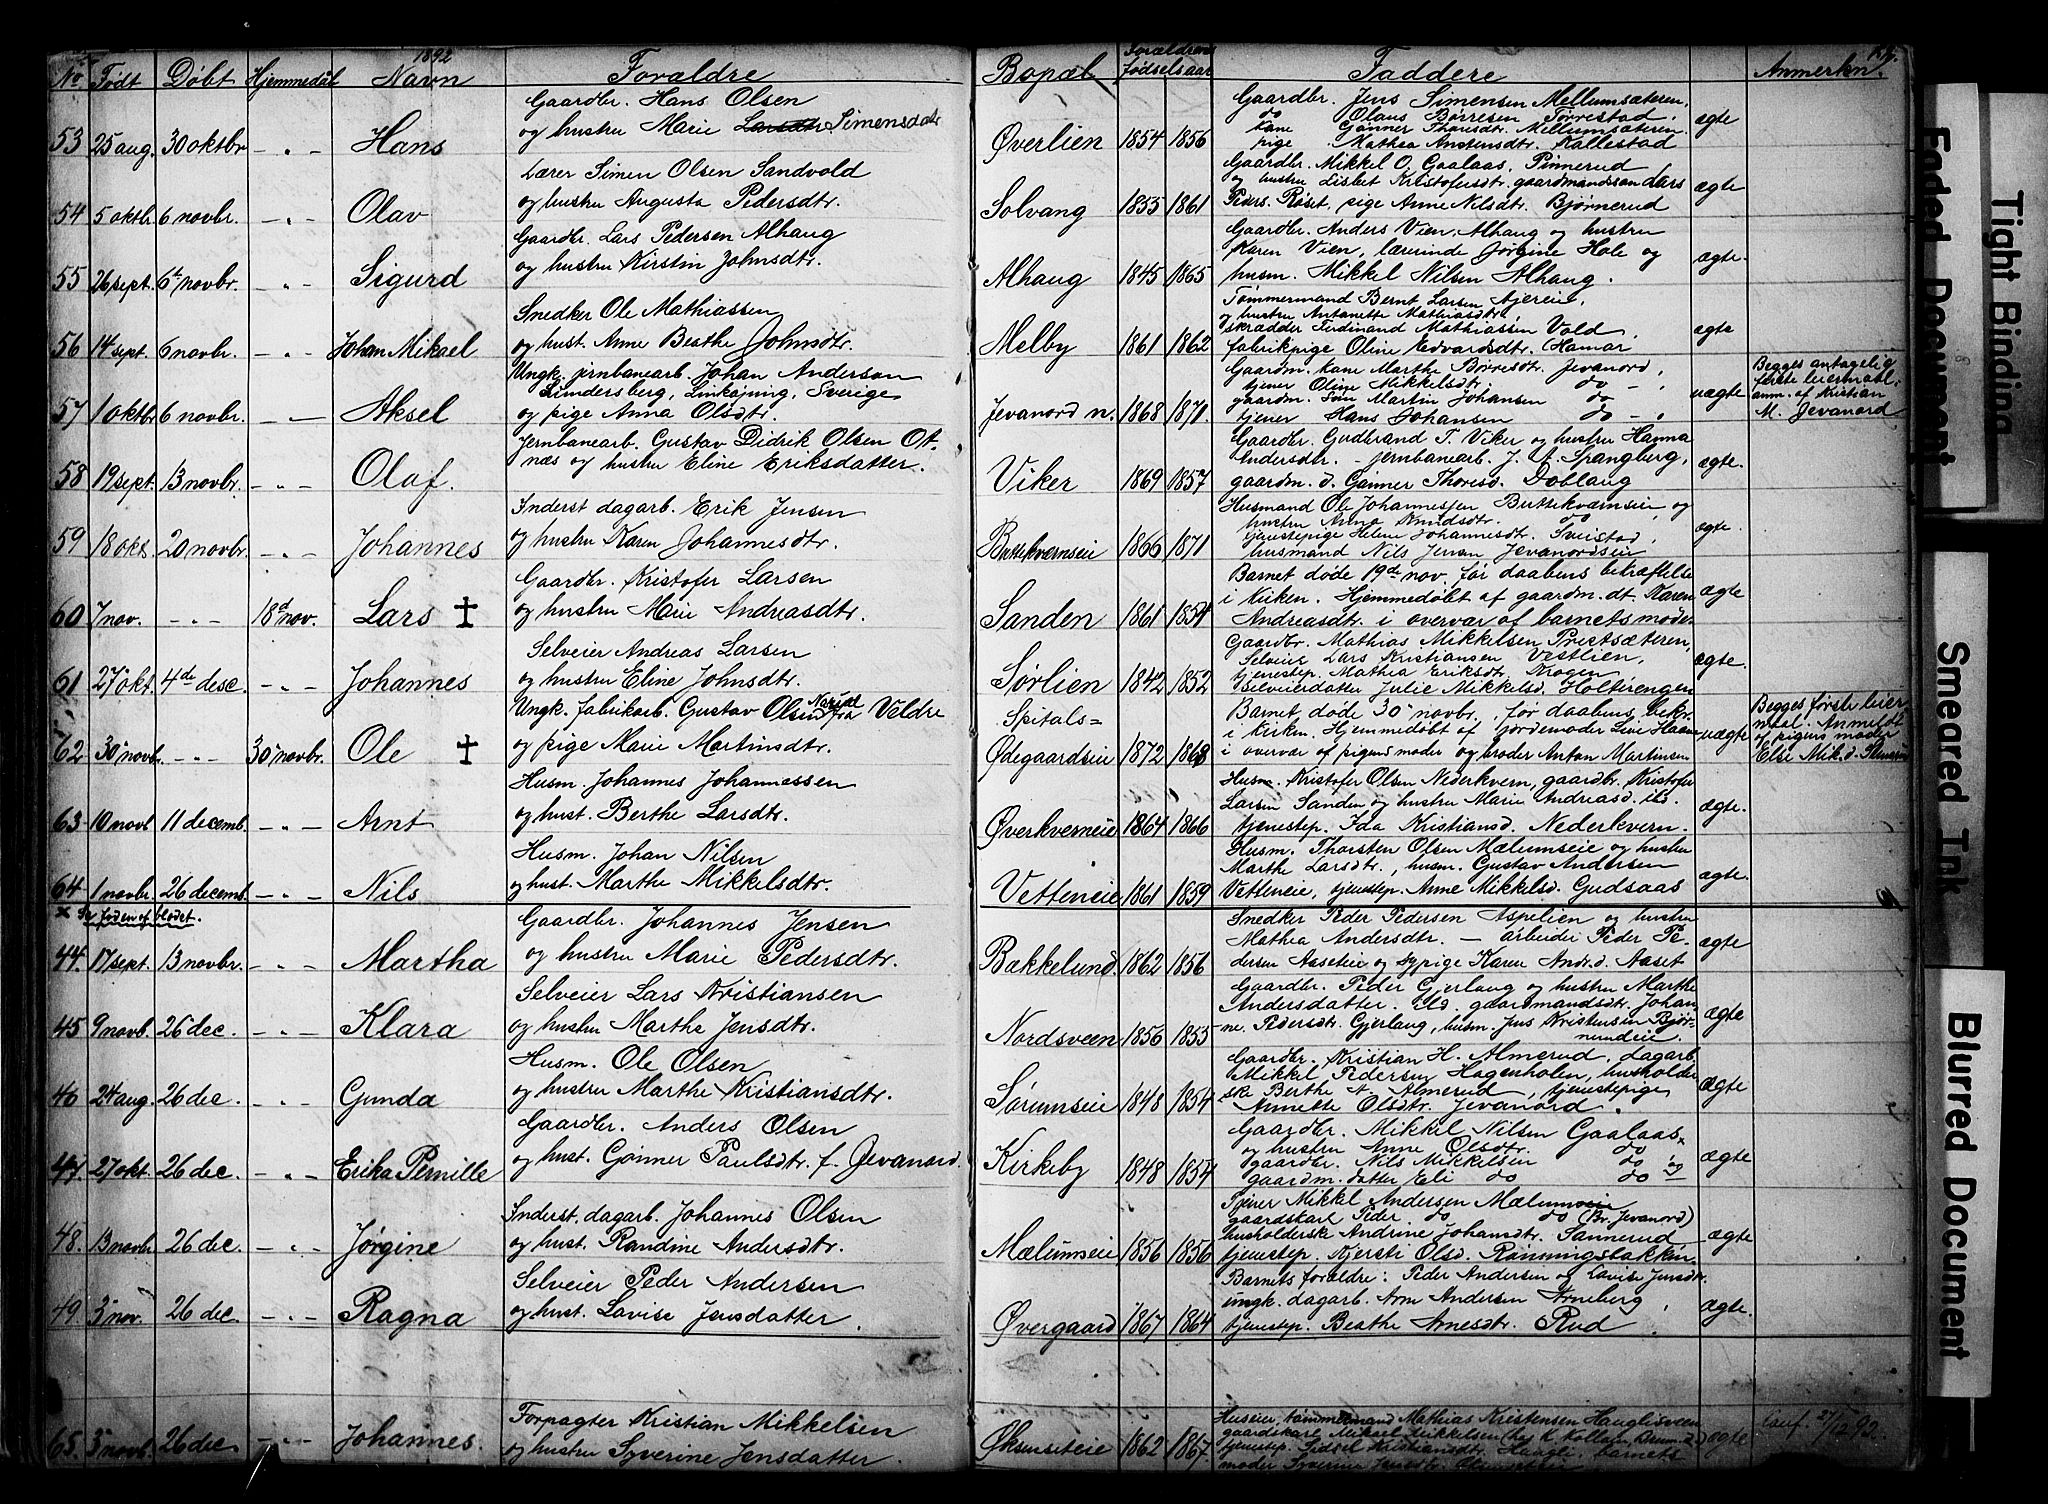 1892
No Født Døbt Hjemmedøbt Navn Forældre Bopæl Forældrenes fødselsaar Faddere Anmerkn.
Gaardbr. Hans Olsen
53 25 aug. 30 oktbr. — „ — Hans og hustru Marie Larsdtr Simensdatr
Øverlien 1854 1856
Gaardbr. Jens Simensen Mellumsæteren,
do Olaus Børresen Torrestad,
kone Gønner Thorsdtr. Mellumsæteren
pige Mathea Anstensdtr. Kallestad
ægte
Lærer Simen Olsen Sandvold
54 5 oktb. 6 novbr. — „ — Olav og hustru Augusta Pedersdtr.
Solvang 1855 1861
Gaardbr. Mikkel O. Gaalaas, Pinnerud,
og hustru Lisbet Kristofersdtr. gaardmandssøn Lars
Peders. Røset, pige Anne Nilsdtr. Bjørnerud
ægte
Gaardbr. Lars Pedersen Alhaug
55 26 sept. 6te novbr. — „ — Sigurd og hustru Kirstin Johnsdtr.
Alhaug 1845 1865
Gaardbr. Anders Vien, Alhaug og hustru
Karen Vien, lærerinde Jørgine Hole og
husm. Mikkel Nilsen Alhaug.
ægte.
Snedker Ole Mathiassen
56 14 sept. 6 novbr. — „ — Johan Mikael og hust. Anne Beathe Johnsdtr.
Melby 1861 1862
Tømmermand Bernt Larsen
og hustru Antonette Mathiasdtr,
skrædder Ferdinand Mathiassen Vold,
fabrikpige Oline Edvardsdtr. Hamar
ægte
Ungk. jernbanearb. Johan Anderson
Lindersberg, Linkøping, Sverige
57 1 oktbr 6 novbr. — „ — Aksel og pige Anna Olsdtr.
Jevanord n. 1868 1870.
Gaardm. kone Marthe Børresdtr. Jevanord,
tjener Oline Mikkelsdtr. do — ,
gaardm. Søn Martin Johansen do
tjener Hans Johansen do — ,
uægte
Begges antagelig
første leiermaal.
anm. af Kristian
M. Jevanord
Jernbanearb. Gustav Didrik Olsen Ot-
58 19 sept. 13 novbr. — „ — Olaf. næs og hustru Eline Eriksdatter.
Viker 1869 1857
Gaardbr. Gudbrand T. Viker og hustru Hanna
Andersdtr. — jernbanearb. J. A. Spangberg,
gaardm. d. Gønner Thoresd. Doblaug
ægte.
Inderst dagarb. Erik Jensen
59 18 okt. 20 novbr. — „ — Johannes og hustru Karen Johannesdtr.
Buttekvernseie 1866 1871
Husmand Ole Johannessen Buttekværnseie, og
hustru Anna Knudsdtr. do
tjenestepige Helene Johannesdtr. Sveistad,
husmand Nils Jensen Jevanordseie
ægte.
Gaardbr. Kristofer Larsen
60 7 nov. — „ — 18d nov. Lars ✝ og hustru Marie Andreasdtr.
Sanden 1861 1854
Barnet døde 19de nov. før daabens bekræftelse
i kirken. Hjemmedøbt af gaardm. dt. Karen
Andreasdtr. i overvær af barnets moder
ægte
Selveier Andreas Larsen
61 27 okt. 4de desc. — „ — Johannes og hustru Eline Johnsdtr.
Sørlien 1842 1852
Gaardbr. Mathias Mikkelsen Prestsæteren,
Selveier Lars Kristiansen Vestlien,
tjenestep. Mathea Eriksdtr. Krogen
Selveierdatter Julie Mikkelsd. Holtirengen
ægte.
Ungk. fabrikarb. Gustav Olsen fra Veldre
62 30 novb. — „ — 30 novbr. Ole ✝ og pige Marie Martinsdtr.
Spitals=
Ødegaardseie 1872 1868
Barnet døde 30 novbr. før daabens bekr.
i kirken. Hjemmedøbt af jordemoder
i overvær af pigens moder og broder Anton Martinsen
uægte
Begges første leier-
maal. Anmeldt
af pigens moder
Else Mik.d.
Husm. Johannes Johannessen
63 10 novb 11 decemb. — „ — Arnt og hust. Berthe Larsdtr.
Øverkverneie 1864 1866
Husm. Kristofer Olsen Nederkvern, gaardbr. Kristofer
Larsen Sanden og hustru Marie Andreasd. ibd.
tjenestep. Ida Kristiansd. Nederkvern.
ægte.
Husm. Johan Nilsen
64 1 novbr. 26 decemb. — „ — Nils og hust. Marthe Mikkelsdtr.
Vetteneie 1861 1859
Husm. Thorsten Olsen Mælumseie og hustru
Marthe Larsdtr., husm. Gustav Andersen
Vetteneie, tjenestep. Anne Mikkelsd. Gudsaas
ægte.
Gaardbr. Johannes Jensen
44. 17 sept. 13 novbr. — „ — Martha og hustru Marie Pedersdtr.
Bakkelund 1862 1856
Snedker Peder Pedersen Aspelien og hustru
Mathea Andersdtr. — arbeider Peder Pe-
dersen Aaseteie og sypige Karen Andr.d. Aaset
ægte
Selveier Lars Kristiansen
45 9 novb. 26 dec. — „ — Klara og hustru Marthe Jensdtr.
Nordsveen 1856 1855
Gaardbr. Peder Gjerlaug og hustru Marthe
Andersdatter. gaardmandsdtr. Johan-
ne Pedersdtr. Gjerlaug, husm. Jens Kristensen Bjør-
nerudeie.
ægte
Husm. Ole Olsen
46 24 aug. 26 dec. — „ — Gunda og hustru Marthe Kristiansdtr.
Sørumseie 1848 1854
Gaardbr. Kristian H. Almerud, dagarb.
Mikkel Pedersen Hagenholen, husholder
ske Berthe N. Almerud, tjenestepige
Annette Olsdtr. Jevanord.
ægte
Gaardbr. Anders Olsen
47. 27 okt. 26 dec — „ — Erika Pernille og hust. Gønner Paulsdtr. f. Jevanord.
Kirkeby 1848 1854
Gaardbr. Mikkel Nilsen Gaalaas
og hustru Anne Olsdtr. do
gaardbr. Nils Mikkelsen do og
gaardm. datter Eli do do —
ægte
Inderst. dagarb. Johannes Olsen
48. 13 novbr 26 dec. — „ — Jørgine og hust. Randine Andersdtr.
Mælumseie 1856 1856
Tjener Mikkel Andersen Mælumseie
gaardskarl Peder do do (Br. Jevanord)
husholderske Andrine Johansdtr. Sannerud
tjenestep. Kjersti Olsd. Rønningsbakken
ægte
Selveier Peder Andersen
49 3 nov. 26 dec — „ — Ragna og hust. Lavise Jensdatter.
Øvergaard 1867 1864
Barnets forældre: Peder Andersen og Lavise Jensdtr.
ungk. dagarb. Arne Andersen Arneberg,
tjenestep. Beathe Arnesdtr. Rud.
ægte.
Forpagter Kristian Mikkelsen
65. 3 novb. 26 dec — „ — Johannes. og hustru Syverine Jensdatter.
Øksenseteie 1862 1867.
Huseier, tømmermand Mathias Kristensen Hauglisveen
gaardskarl Mikael Mikkelsen
tjenestep. Sidsel Kristiansdtr. Haugli, barnets
moder Syverine Jensdtr.
ægte
Faded Document
Tight Binding
Smeared Ink
Blurred Document